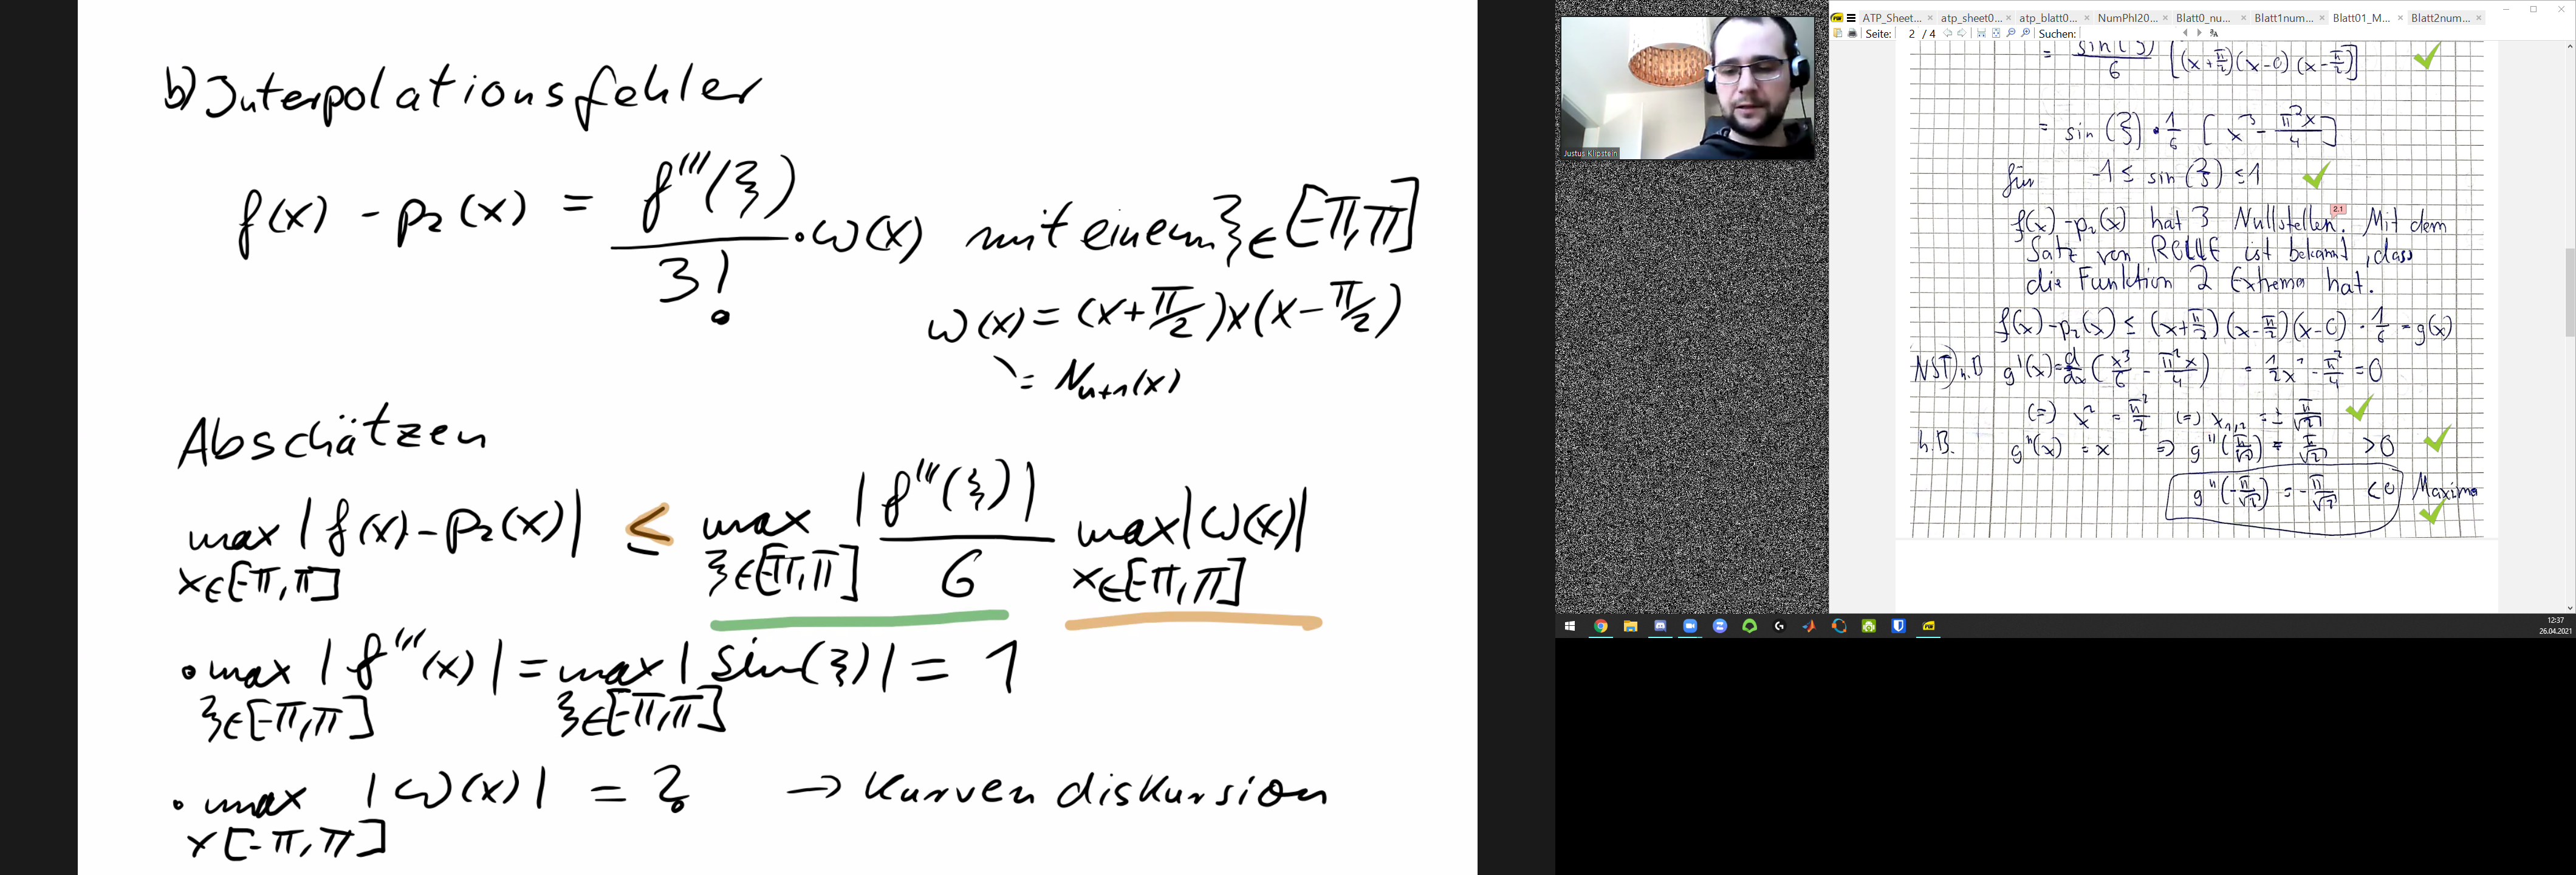 b) Interpolationsfehler
f(x) - p₂(x) = f'''(ξ)/3! · ω(x) mit einem ξ ∈ [-π, π]
ω(x) = (x + π/2) x (x - π/2)
= Nₙ₊₁(x)
Abschätzen
max |f(x) - p₂(x)| ≤ max |f'''(ξ)|/6 max |ω(x)|
x∈[-π, π] ξ∈[-π, π] x∈[-π, π]
• max |f'''(x)| = max |sin(ξ)| = 1
ξ∈[-π, π] ξ∈[-π, π]
• max |ω(x)| = ? → Kurvendiskussion
x[-π, π]
Justus Klipstein
ATP_Sheet... atp_sheet0... atp_blatt0... NumPhI20... Blatt0_nu... Blatt1num... Blatt01_M... Blatt2num...
Seite: 2 / 4 Suchen:
= sin(ξ)/6 [(x + π/2)(x - 0)(x - π/2)]
= sin(ξ) · 1/6 [x³ - π²x/4]
für -1 ≤ sin(ξ) ≤ 1
2.1
f(x) - p₂(x) hat 3 Nullstellen. Mit dem
Satz von ROLLE ist bekannt, dass
die Funktion 2 Extrema hat.
f(x) - p₂(x) ≤ (x + π/2)(x - π/2)(x - 0) · 1/6 = g(x)
NST) n.B g'(x) = d/dx (x³/6 - π²x/4) = 1/2 x² - π²/4 = 0
(=) x² = π²/2 (=) x₁,₂ = ± π/√2
h.B. g''(x) = x ⇒ g''(π/√2) = π/√2 > 0
g''(-π/√2) = -π/√2 < 0 Maxima
12:37
26.04.2021